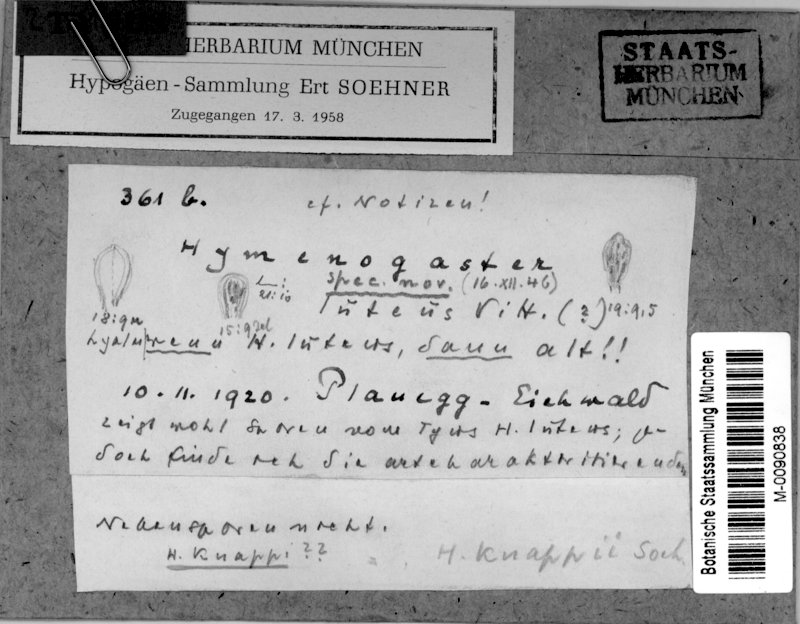 HERBARIUM MÜNCHEN
Hypogäen - Sammlung Ert SOEHNER
Zugegangen 17. 3. 1958
STAATS-
HERBARIUM
MÜNCHEN
361 b.
cf. Notizen!
Hymenogaster
spec. nov. (16.XII.46)
luteus Vitt. (?) 19:9,5
21:10
18:9μ
15:9
hyalin
wenn H. luteus, dann alt!!
10. 11. 1920. Planegg - Eichwald
zeigt wohl Sporen vom Typus H. luteus; je-
doch finde ich die artcharakteristierenden
Nebensporen nicht.
H. Knappi ??
H. Knappii Soeh.
Botanische Staatssammlung München
M-0090838